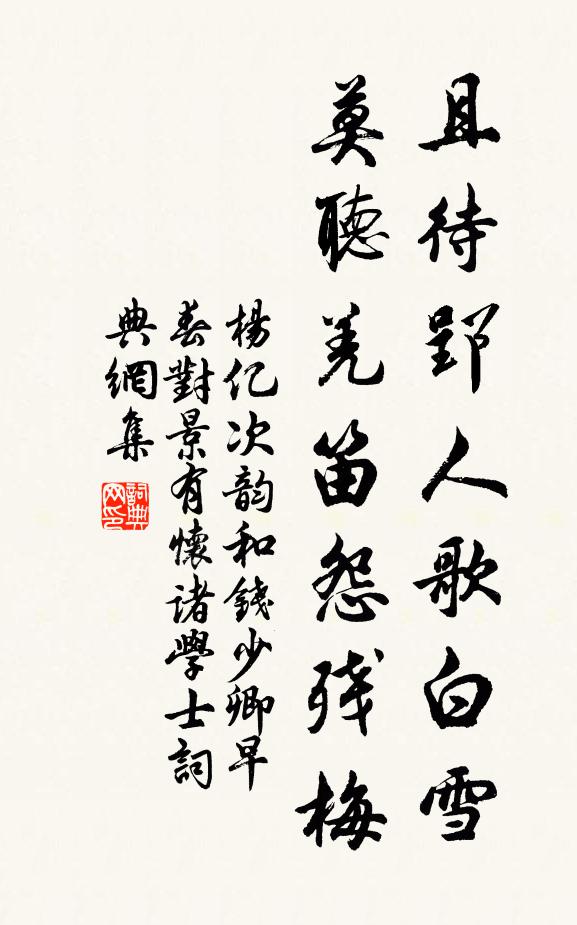 且待郢人歌白雪
莫聽羌笛怨残梅
楊亿次韵和錢少卿早
春對景有懷諸學士詞
典網集
詞典
网印